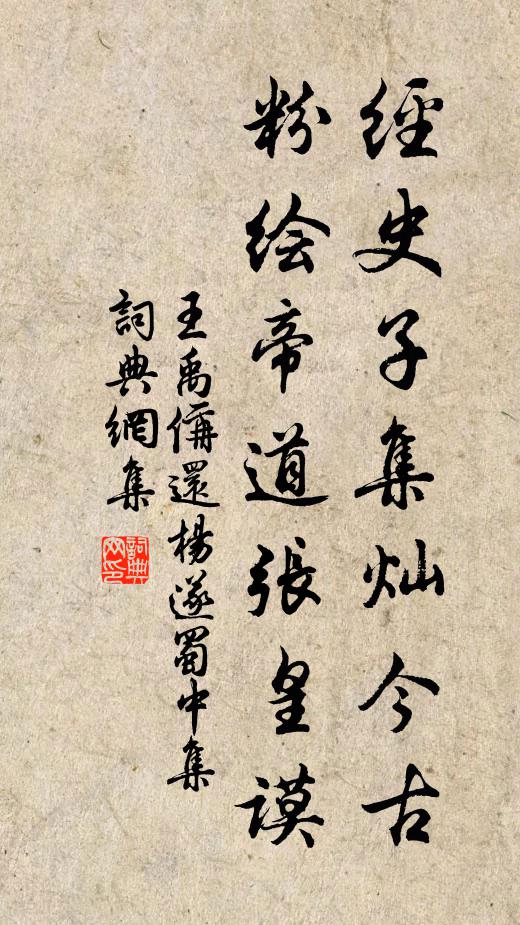 經史子集灿今古
粉绘帝道張皇謨
王禹偁還楊遂蜀中集
詞典網集
詞典网印